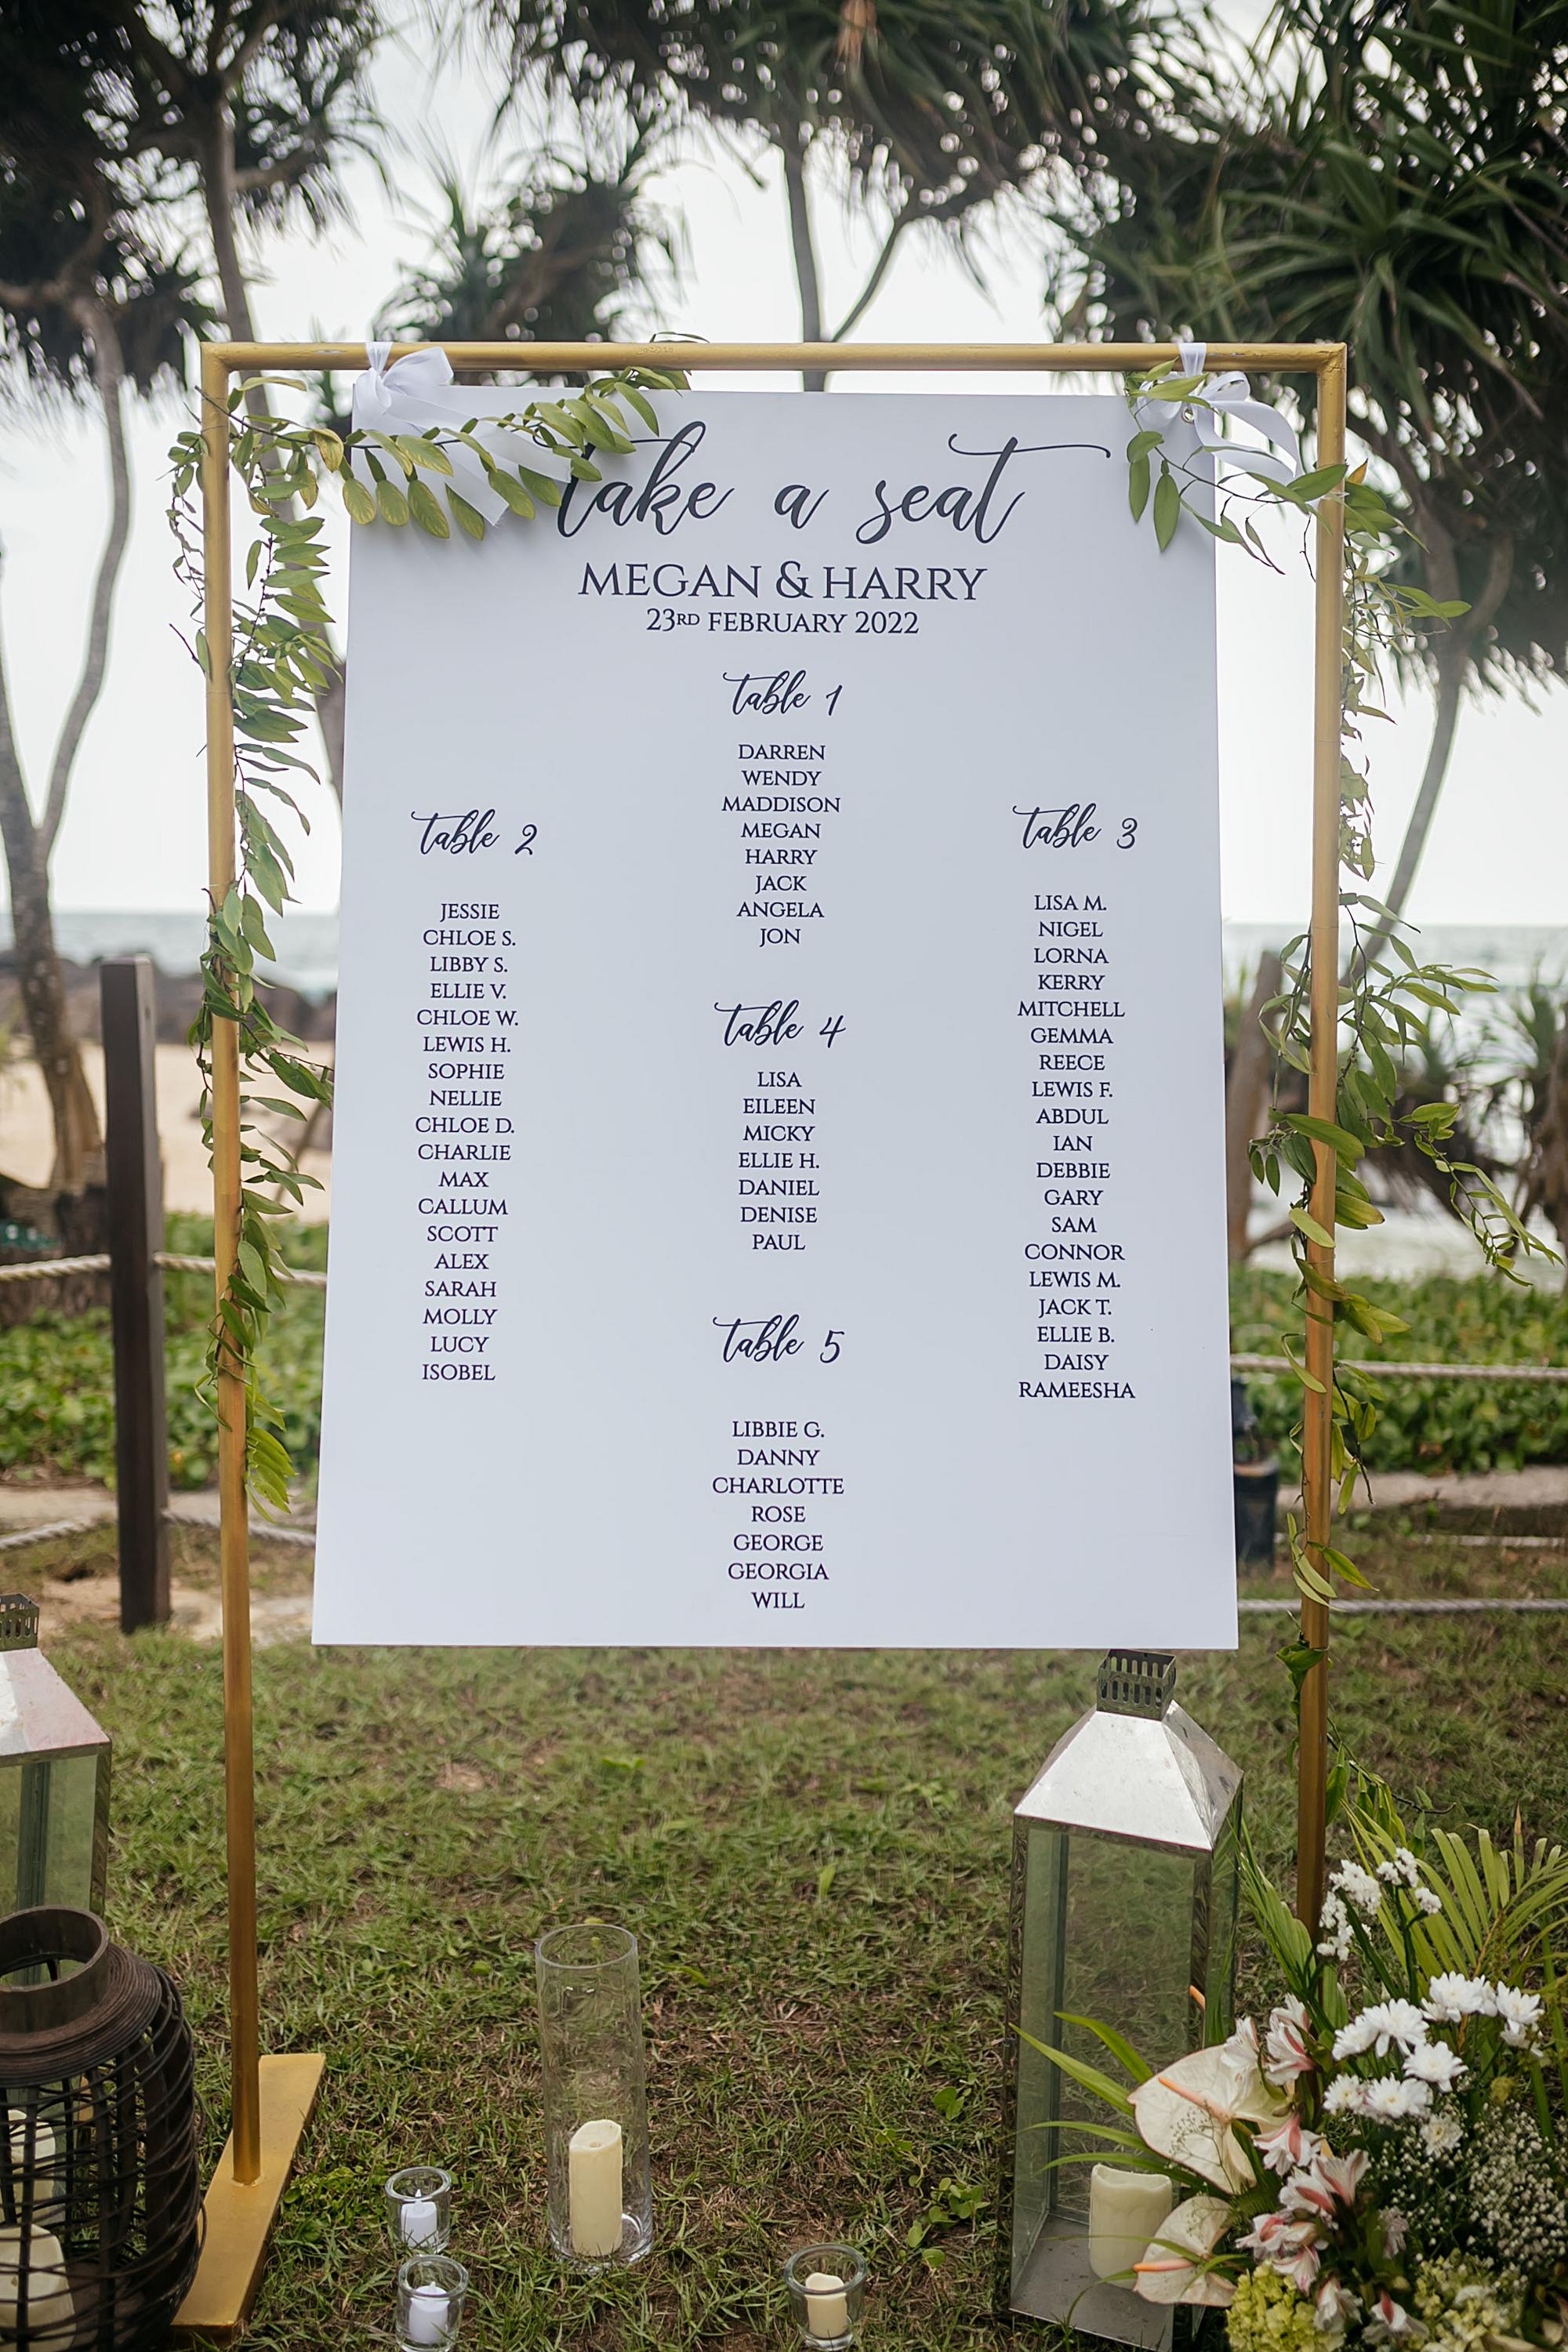 take a seat
MEGAN & HARRY
23RD FEBRUARY 2022
table 1
DARREN
WENDY
MADDISON
MEGAN
HARRY
JACK
ANGELA
JON
table 2
JESSIE
CHLOE S.
LIBBY S.
ELLIE V.
CHLOE W.
LEWIS H.
SOPHIE
NELLIE
CHLOE D.
CHARLIE
MAX
CALLUM
SCOTT
ALEX
SARAH
MOLLY
LUCY
ISOBEL
table 3
LISA M.
NIGEL
LORNA
KERRY
MITCHELL
GEMMA
REECE
LEWIS F.
ABDUL
IAN
DEBBIE
GARY
SAM
CONNOR
LEWIS M.
JACK T.
ELLIE B.
DAISY
RAMEESHA
table 4
LISA
EILEEN
MICKY
ELLIE H.
DANIEL
DENISE
PAUL
table 5
LIBBIE G.
DANNY
CHARLOTTE
ROSE
GEORGE
GEORGIA
WILL